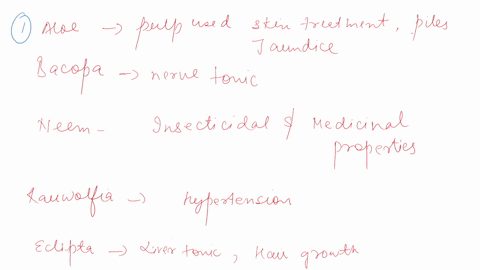 ① Aloe → pulp used skin treatment, piles
Jaundice
Bacopa → nerve tonic
Neem - Insecticidal & Medicinal
properties
Rauwolfia → hypertension
Eclipta → Liver tonic, Hair growth